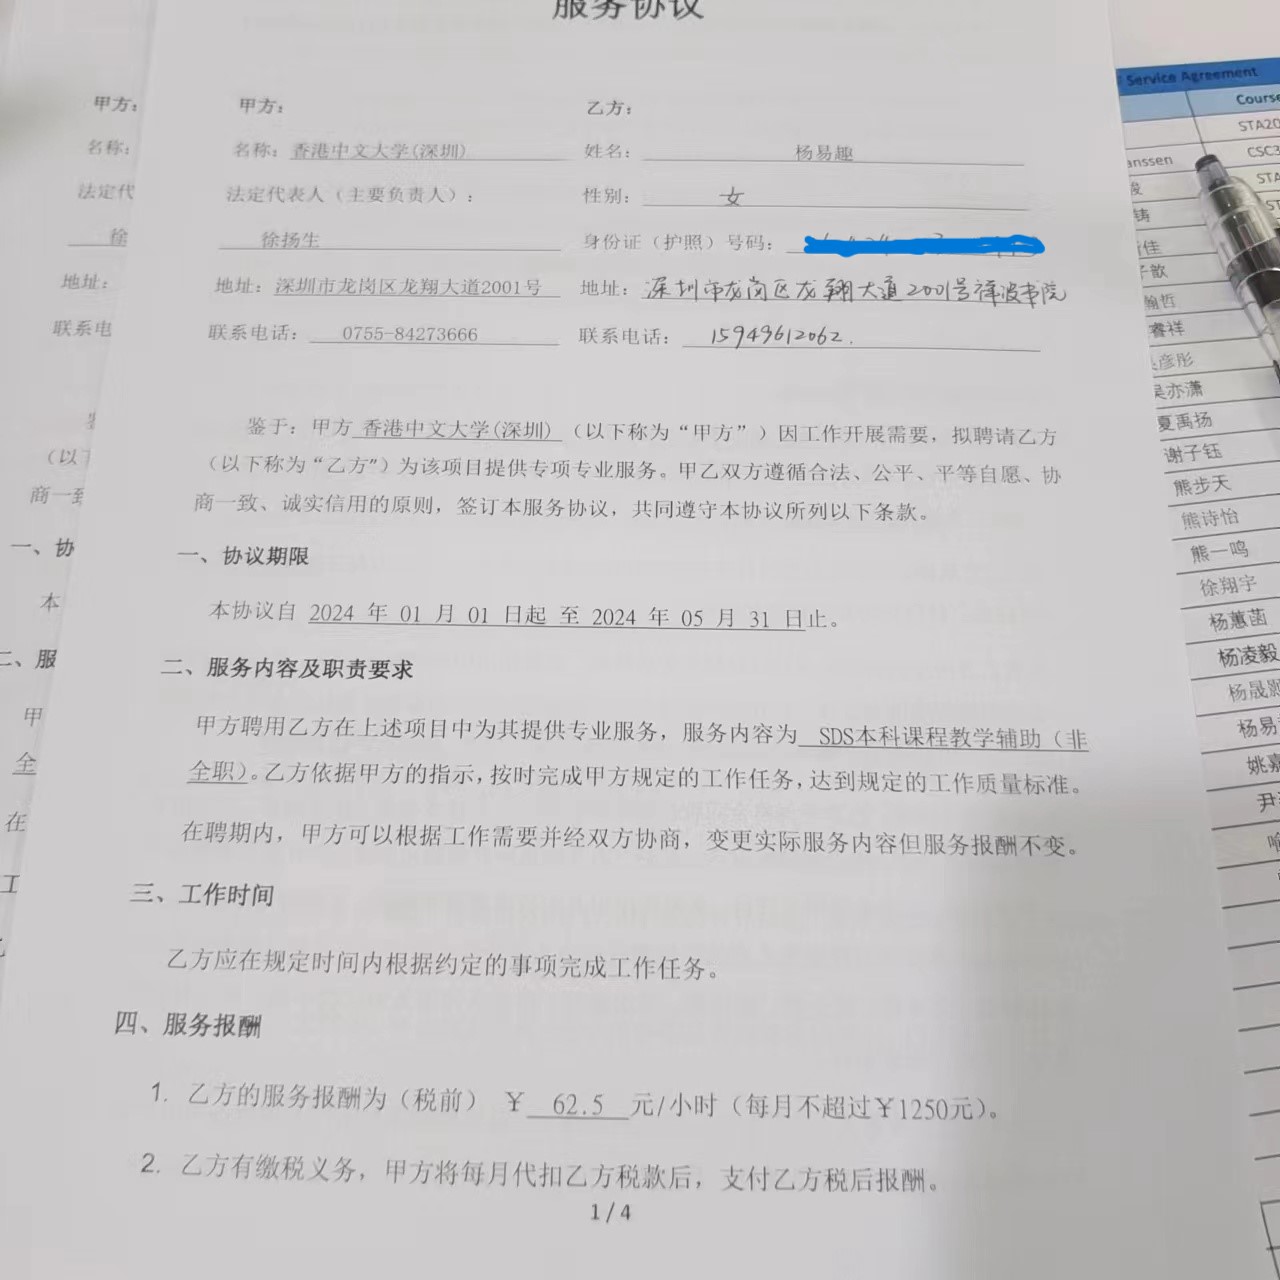 服务协议
甲方：
甲方：
乙方：
名称：
名称：香港中文大学(深圳)
姓名：杨易趣
法定代
法定代表人（主要负责人）：
性别：女
徐
徐扬生
身份证（护照）号码：
地址：
地址：深圳市龙岗区龙翔大道2001号
地址：深圳市龙岗区龙翔大道2001号祥波书院
联系电
联系电话：0755-84273666
联系电话：15949612062.
鉴于：甲方 香港中文大学(深圳) （以下称为“甲方”）因工作开展需要，拟聘请乙方
（以下称为“乙方”）为该项目提供专项专业服务。甲乙双方遵循合法、公平、平等自愿、协
商一致、诚实信用的原则，签订本服务协议，共同遵守本协议所列以下条款。
（以下
商一致
一、协
本
二、服
甲
全
在
一、协议期限
本协议自 2024 年 01 月 01 日起 至 2024 年 05 月 31 日止。
二、服务内容及职责要求
甲方聘用乙方在上述项目中为其提供专业服务，服务内容为 SDS本科课程教学辅助（非
全职）。乙方依据甲方的指示，按时完成甲方规定的工作任务，达到规定的工作质量标准。
在聘期内，甲方可以根据工作需要并经双方协商，变更实际服务内容但服务报酬不变。
三、工作时间
乙方应在规定时间内根据约定的事项完成工作任务。
四、服务报酬
1. 乙方的服务报酬为（税前） ￥ 62.5 元/小时（每月不超过￥1250元）。
2. 乙方有缴税义务，甲方将每月代扣乙方税款后，支付乙方税后报酬。
1 / 4
Service Agreement
Course
STA20
anssen
CSC3
STA
ST
铸
佳
歆
瀚哲
睿祥
彦彤
吴亦潇
夏禹扬
谢子钰
熊步天
熊诗怡
熊一鸣
徐翔宇
杨蕙菡
杨凌毅
杨晟
杨易
姚嘉
尹